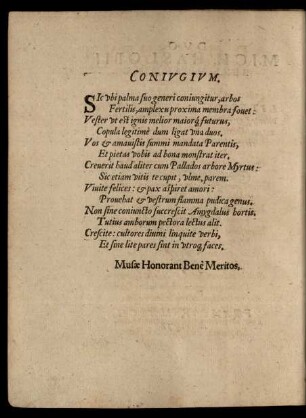 CONIVGIVM.
SIc vbi palma suo generi coniungitur, arbos
Fertilis, amplexu proxima membra fouet:
Vester vt est ignis melior maiorq́ futurus,
Copula legitimè dum ligat vna duos.
Vos & amauistis summi mandata Parentis,
Et pietas vobis ad bona monstrat iter.
Creuerit haud aliter cum Palladis arbore Myrtus:
Sic etiam vitis te cupit, vlme, parem.
Viuite felices: & pax aspiret amori:
Prouehat & vestrum flamma pudica genus.
Non sine coniuncto succrescit Amygdalus hortis,
Tutius amborum pectora lectus alit.
Crescite: cultores diuini linquite verbi,
Et sine lite pares sint in vtroq́ faces.
Musæ Honorant Benè Meritos.